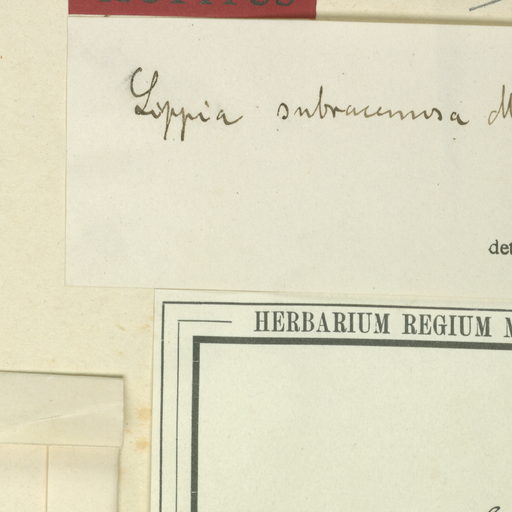 Lippia subracemosa M
det
HERBARIUM REGIUM M